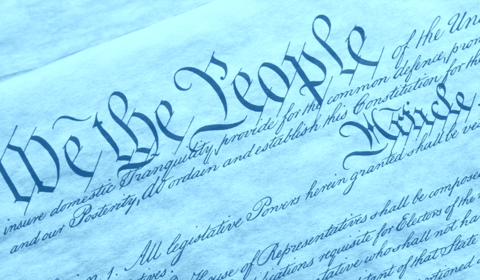 We the People of the Uni
insure domestic Tranquility, provide for the common defence, prom
and our Posterity, do ordain and establish this Constitution for the
Article
All legislative Powers herein granted shall be ves
House of Representatives shall be compose
requisite for Electors of the
who shall not ha
of that State